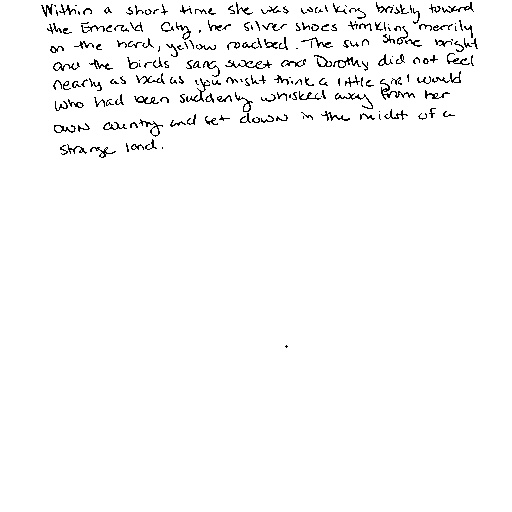 Within a short time she was walking briskly toward
the Emerald City, her silver shoes tinkling merrily
on the hard, yellow roadbed. The sun shone bright
and the birds sang sweet and Dorothy did not feel
nearly as bad as you might think a little girl would
who had been suddenly whisked away from her
own country and set down in the midst of a
strange land.